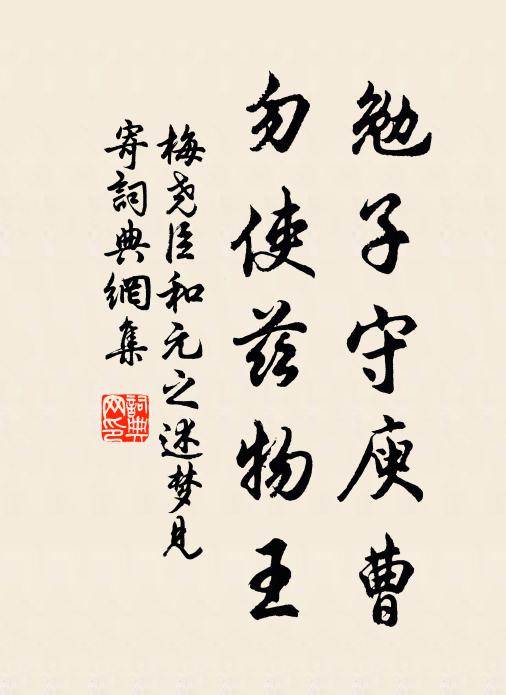 勉子守庾曹
勿使兹物王
梅尧臣和元之述梦见
寄詞典網集
詞典网印